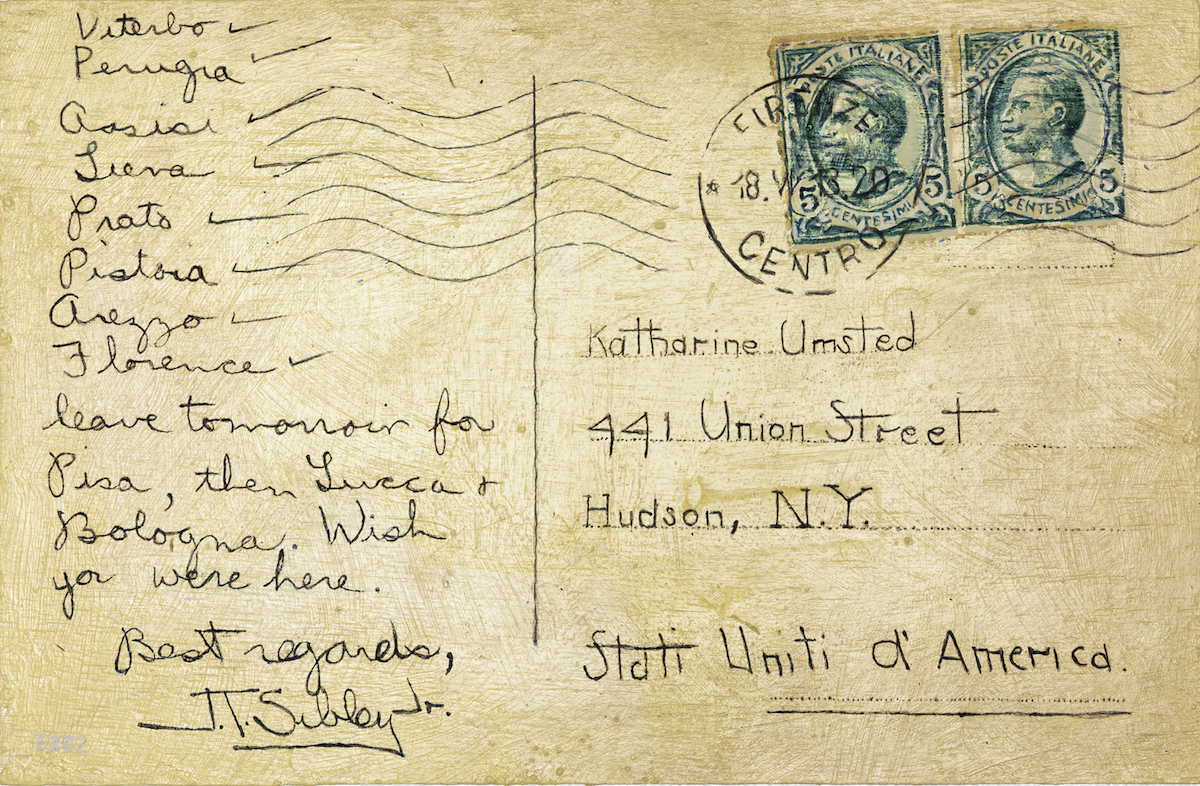 Viterbo
Perugia
Assisi
Siena
Prato
Pistoia
Arezzo
Florence
leave tomorrow for
Pisa, then Lucca &
Bologna. Wish
you were here.
Best regards,
J.T. Sibley Jr.
6282
POSTE ITALIANE
5 CENTESIMI 5
POSTE ITALIANE
5 CENTESIMI 5
FIRENZE
CENTRO
Katharine Umsted
441 Union Street
Hudson, N.Y.
Stati Uniti d'America.